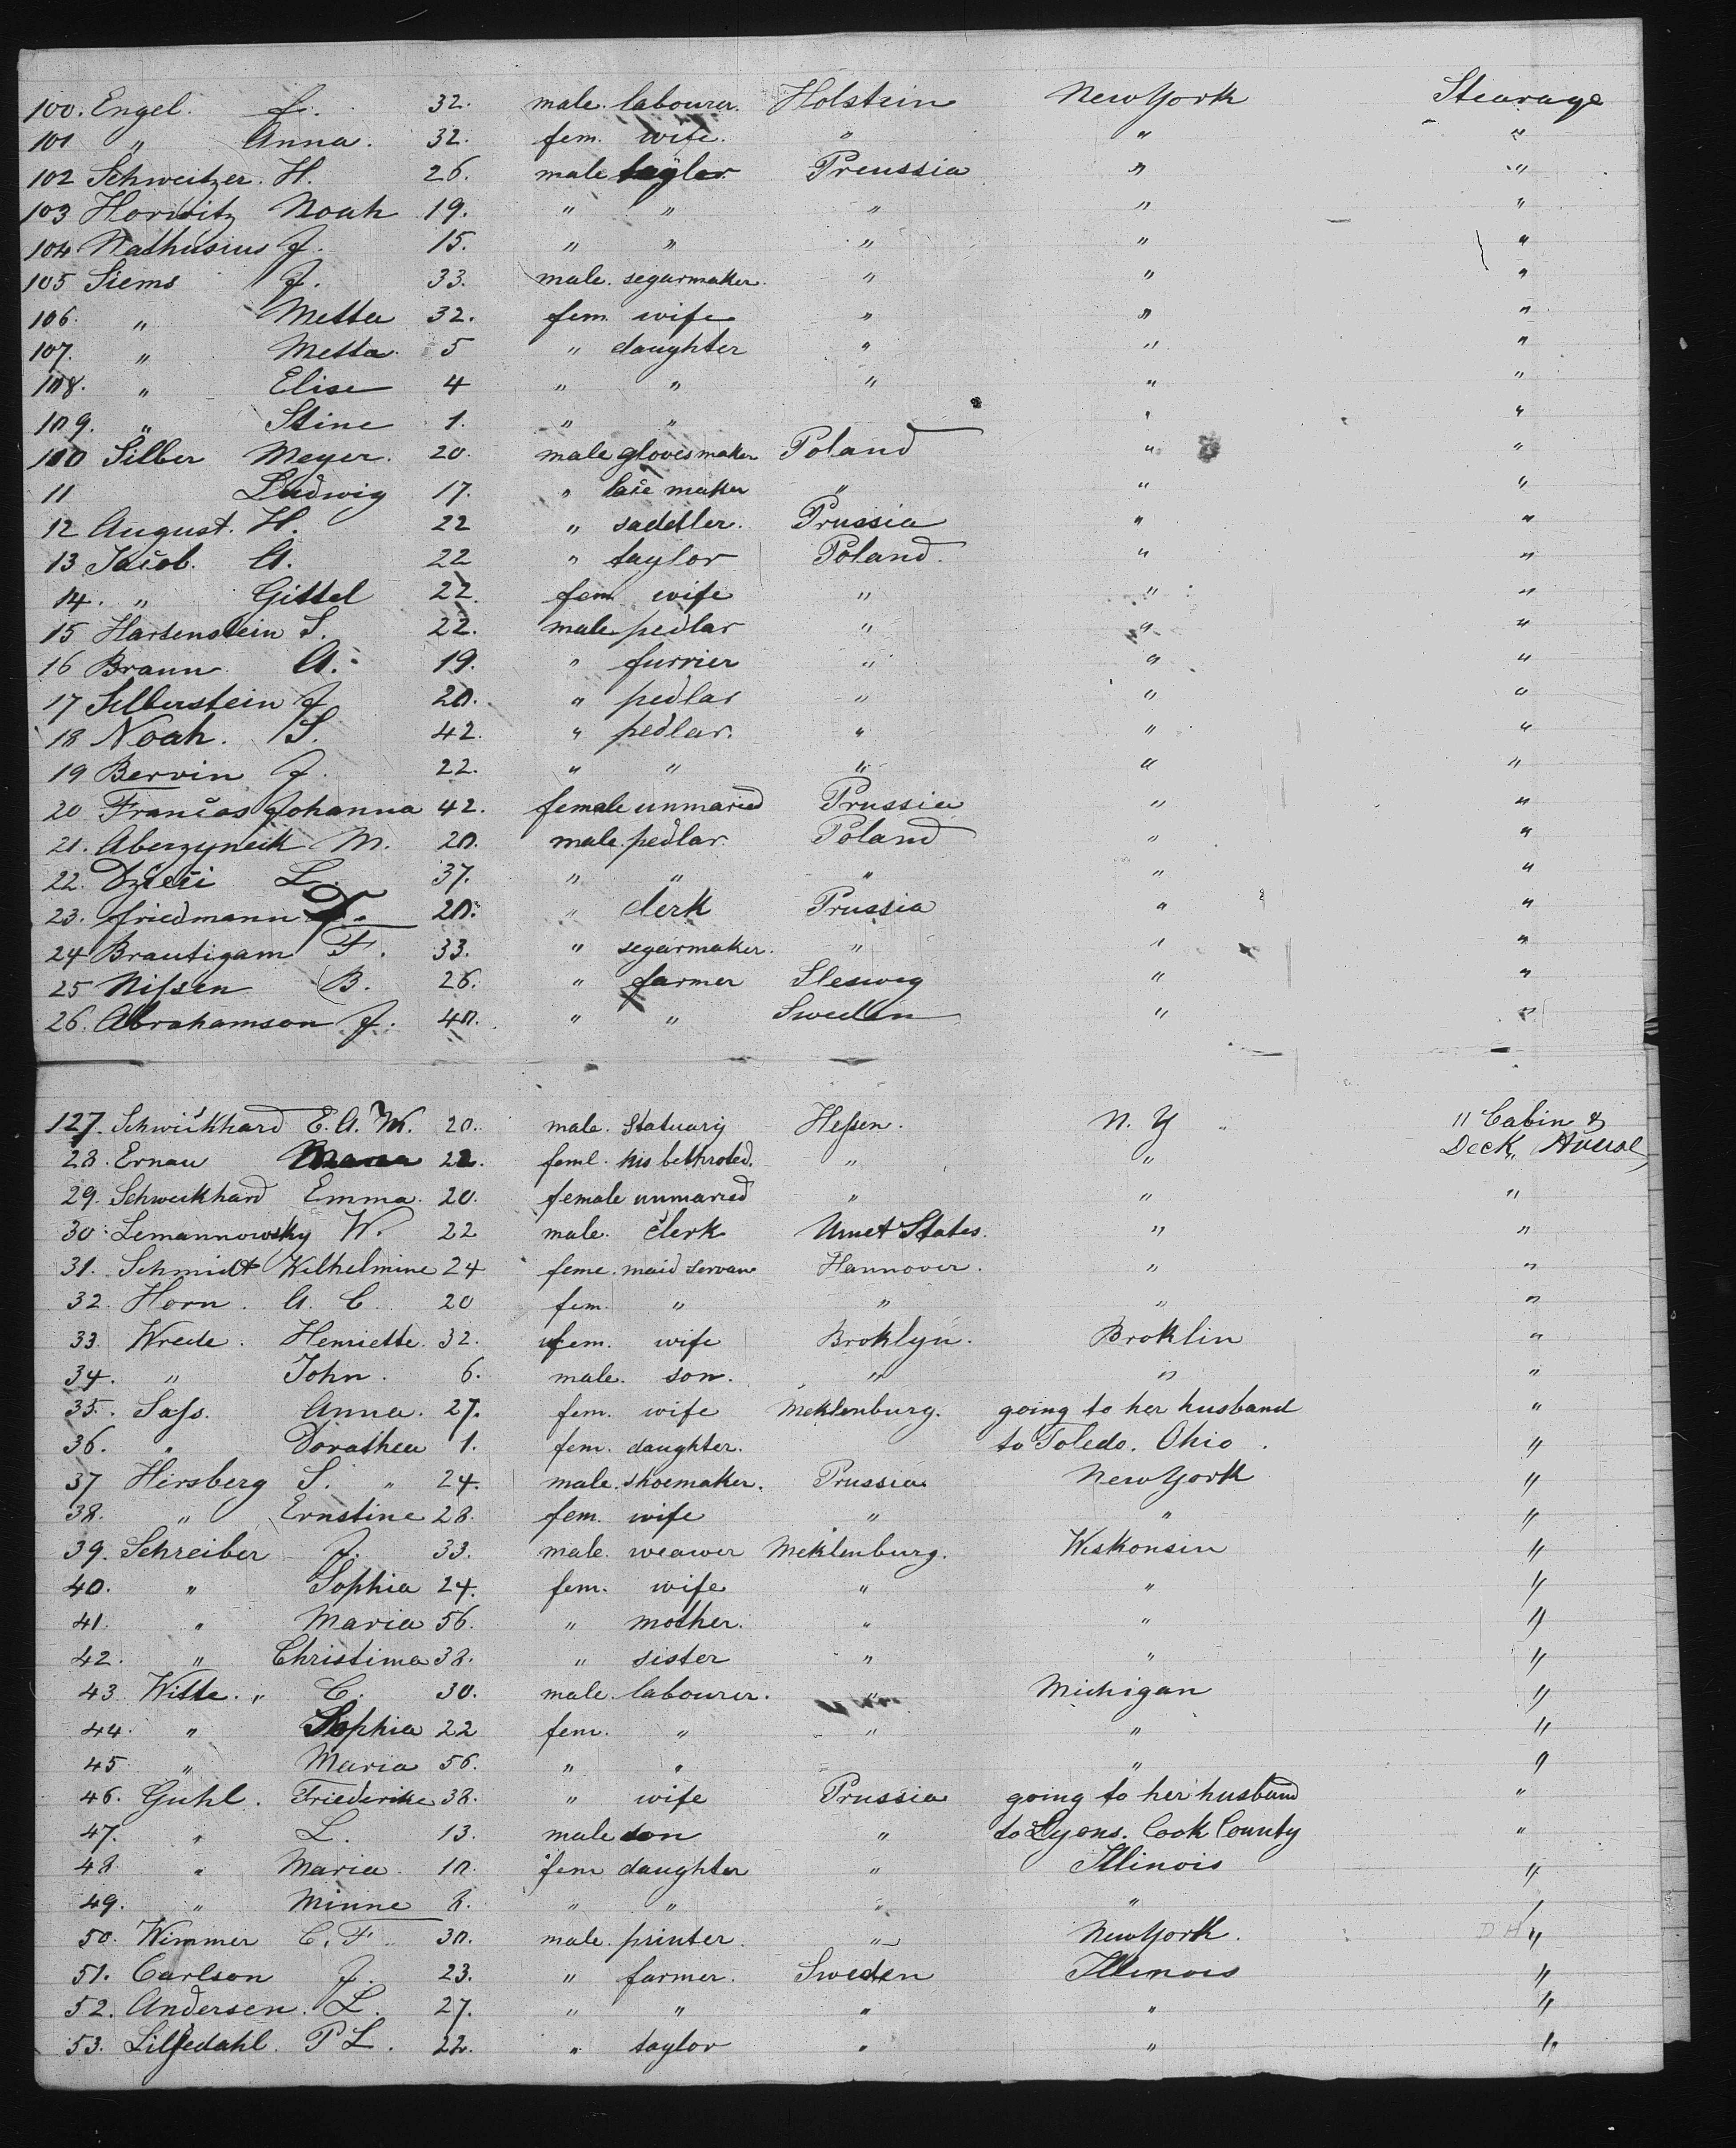 100. Engel. f. 32. male. labourer. Holstein New York Stearage
101 " Anna. 32. fem. wife. " " "
102 Schweitzer. H. 26. male taylor Preussia " "
103 Horwitz Noah 19. " " " " "
104 Nathusius J. 15. " " " " "
105 Siems J. 33. male. segarmaker. " " "
106. " Metta 32. fem. wife " " "
107. " Metta. 5 " daughter " " "
108. " Elise 4 " " " " "
109. " Stine 1. " " " "
110 Silber Meyer. 20. male glovesmaker Poland " "
11 Ludwig 17. " lace maker " " "
12 August. H. 22 " sadetler. Prussia " "
13 Jacob. A. 22 " taylor Poland. " "
14. " Gittel 22. fem. wife " " "
15 Hartenstein S. 22. male pedlar " " "
16 Braun A. 19. " furrier " " "
17 Silberstein J. 20. " pedlar " " "
18 Noah. S. 42. " pedlar. " " "
19 Bervin J. 22. " " " " "
20 Francas Johanna 42. female unmaried Prussia " "
21. Aberzyneck M. 20. male. pedlar. Poland " "
22. L. 37. " " " " "
23. friedmann 20. " clerk Prussia " "
24 Brautigam F. 33. " segarmaker. " " "
25 Nissen B. 26. " farmer Sleswig " "
26. Abrahamson J. 40. " " Sweden " "
127. Schwickhard E. A. W. 20. male. Statuary Hessen. N. Y " 11 Cabin &
28. Ernau 22. feml. his bethroted. " " Deck House
29. Schweckhard Emma. 20. female unmaried " " "
30. Lemannowsky W. 22 male. clerk Unnet States. " "
31. Schmidt Wilhelmine 24 feme. maid servan Hannover. " "
32. Horn. A. C. 20 fem. " " " "
33. Wrede. Henriette. 32. fem. wife Broklyn. Broklin "
34. " John. 6. male. son. " " "
35. Sass. Anna. 27. fem. wife Meklenburg. going to her husband "
36. " Dorathea 1. fem. daughter. to Toledo. Ohio. "
37 Hirsberg S. " 24. male. shoemaker. Prussia New York "
38. " Ernstine 28. fem. wife " " "
39. Schreiber J. 33. male. weawer Meklenburg. Wiskonsin "
40. " Sophia 24. fem. wife " " "
41. " Maria 56. " mother. " " "
42. " Christima 38. " sister " " "
43 Witte. " C. 30. male. labourer. " Michigan "
44. " Sophia 22 fem. " " " "
45 " Maria 56. " " " "
46. Guhl. Friederike 38. " wife Prussia going to her husband "
47. " L. 13. male son " to Lyons. Cook County "
48 " Maria. 10. fem daughter " Illinois "
49. " Minne 8. " " " " "
50. Wimmer C. F. 30. male. printer. " New York. D H "
51. Carlson J. 23. " farmer. Sweden Illinois "
52. Andersen. L. 27. " " " " "
53. Liljedahl. P L. 22. " taylor " " "